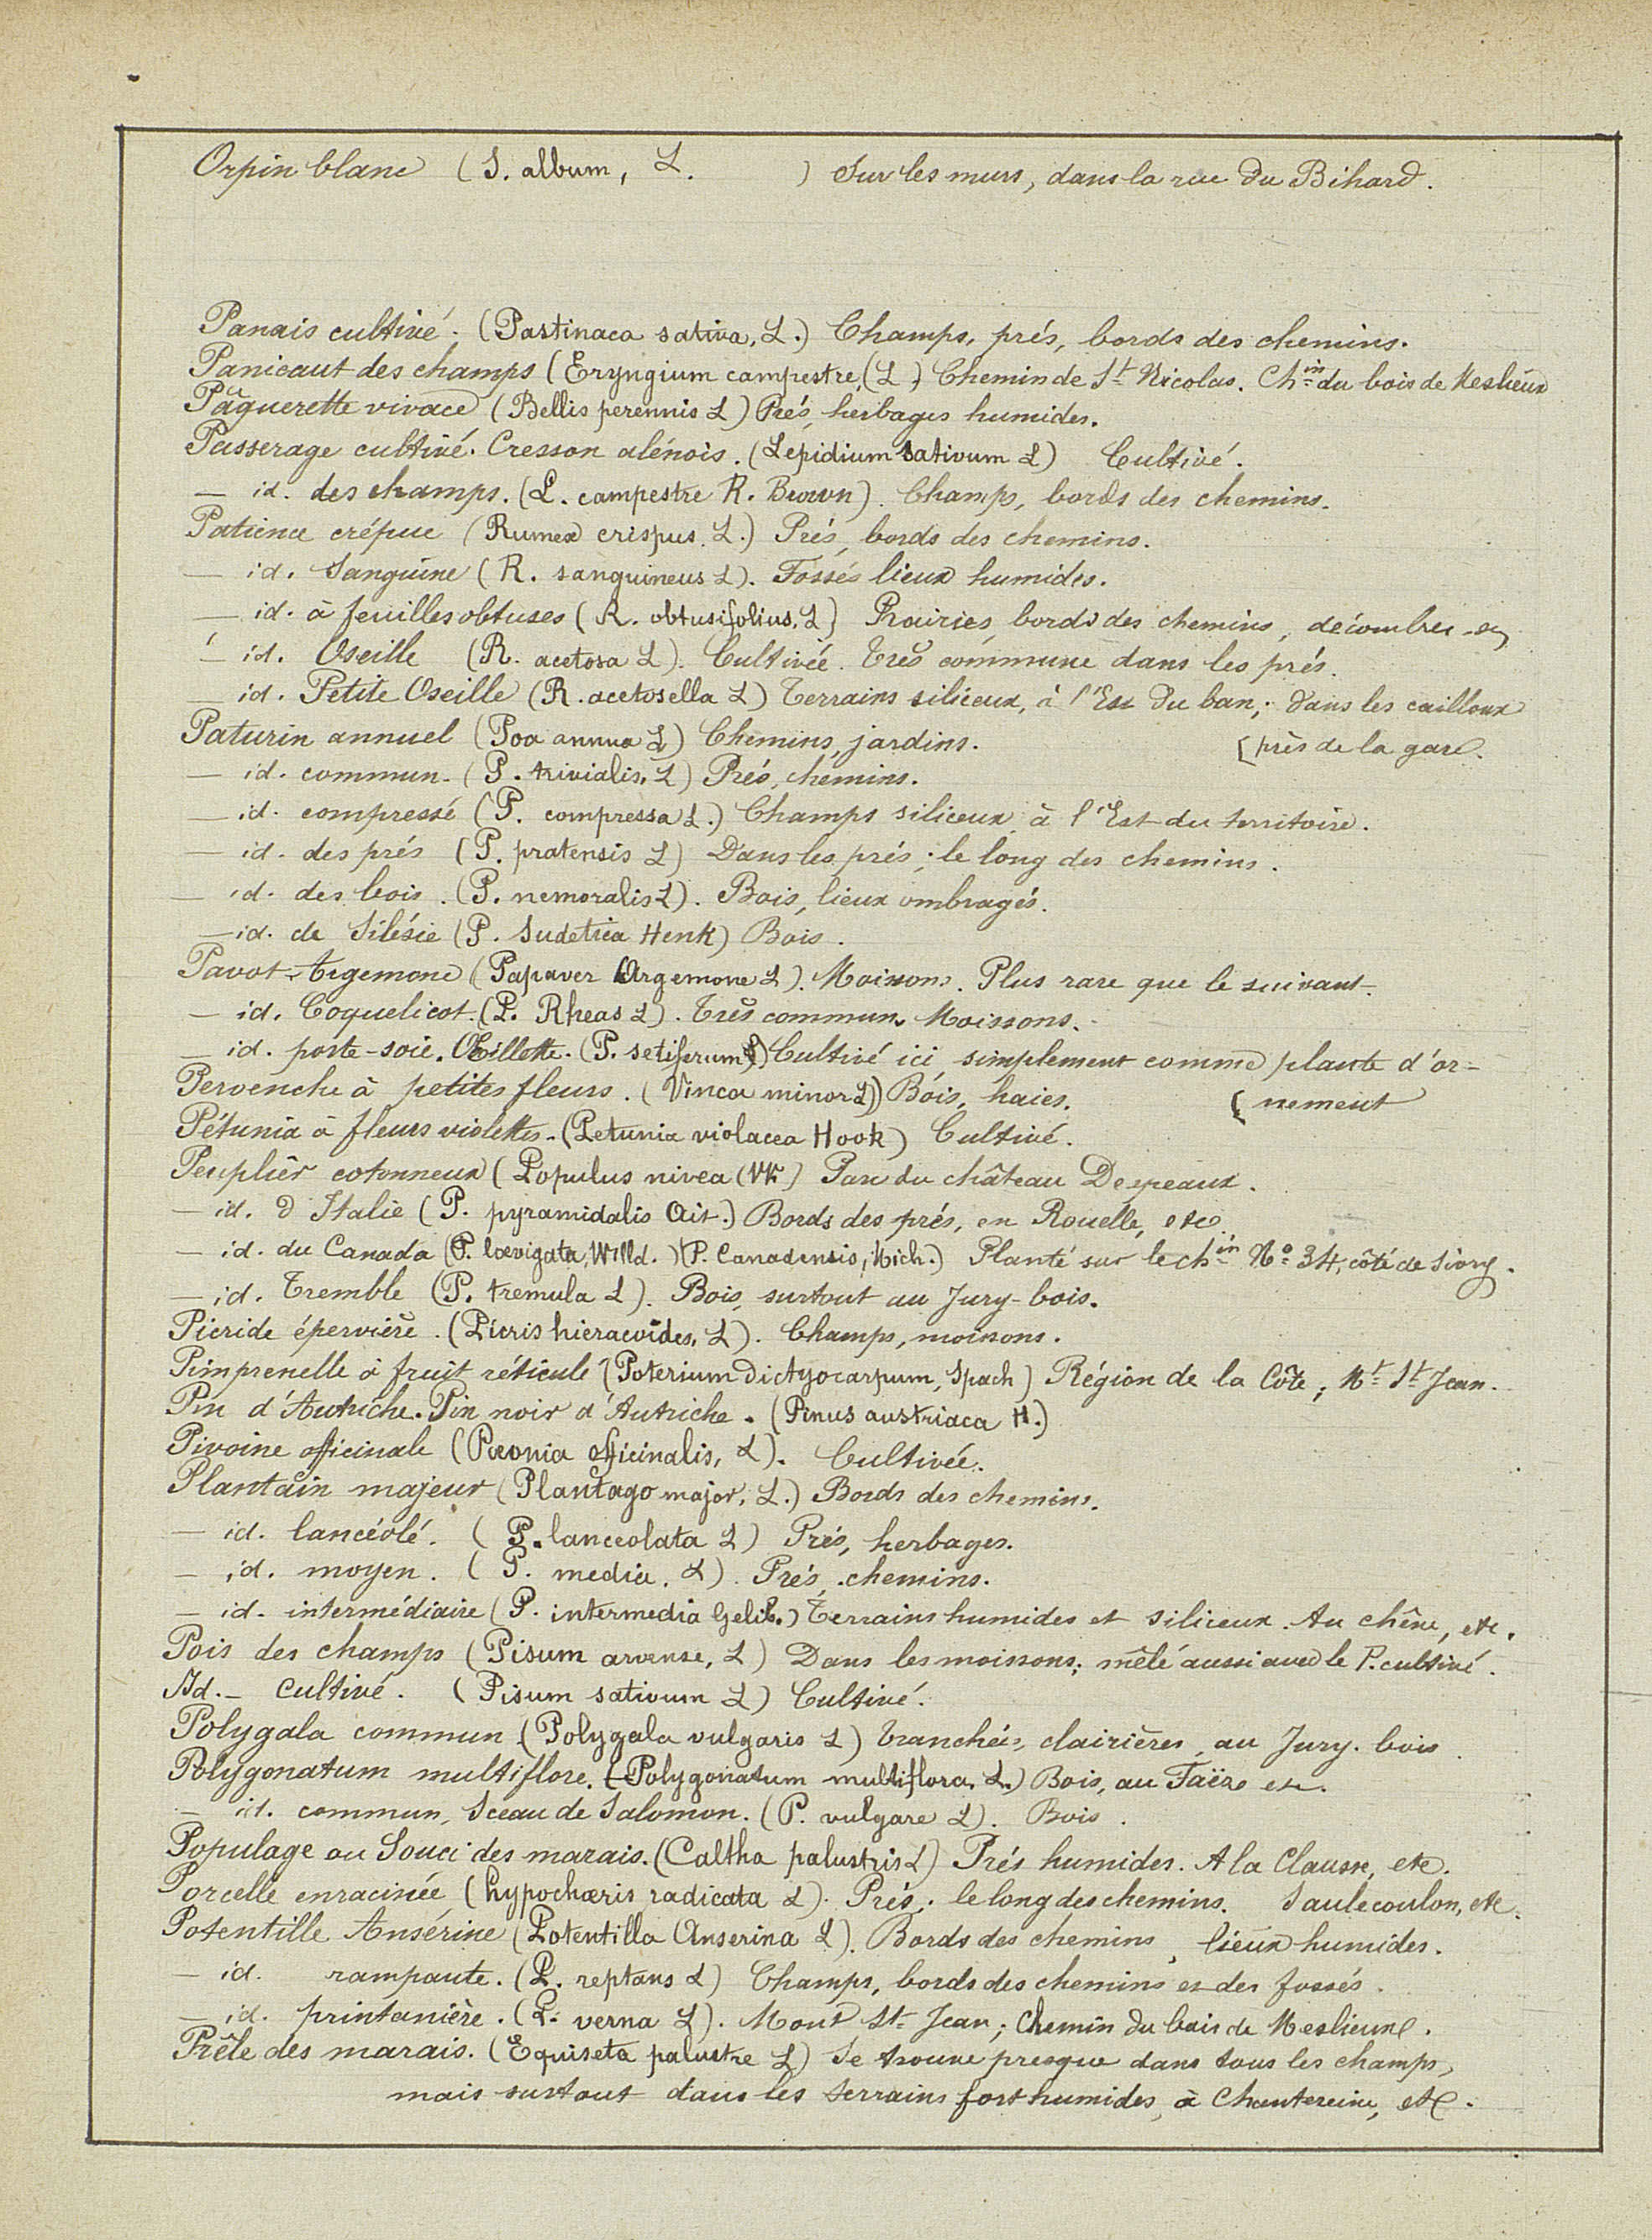 Orpin blanc (S. album, L. ) Sur les murs, dans la rue du Bihard.
Panais cultivé. (Pastinaca sativa, L.) Champs, prés, bords des chemins.
Panicaut des champs (Eryngium campestre, (L.) Chemin de St Nicolas. Chin du bois de Meslieux
Pâquerette vivace (Bellis perennis L) Prés, herbages humides.
Passerage cultivé. Cresson alénois. (Lepidium sativum L) Cultivé.
— id. des champs. (L. campestre R. Brown). Champs, bords des chemins.
Patience crépue (Rumex crispus. L.) Prés, bords des chemins.
— id. Sanguine (R. sanguineus L). Fossés lieux humides.
— id. à feuilles obtuses (R. obtusifolius, L) Prairies, bords des chemins, décombres
— id. Oseille (R. acetosa L). Cultivée. Très commune dans les prés.
— id. Petite Oseille (R. acetosella L) Terrains siliceux, à l'Est du ban; dans les cailloux
Paturin annuel (Poa annua L) Chemins, jardins. (près de la gare.
— id. commun. (P. trivialis, L) Prés, chemins.
— id. compressé (P. compressa L.) Champs siliceux à l'Est du territoire.
— id. des prés (P. pratensis L) Dans les prés; le long des chemins.
— id. des bois. (P. nemoralis L). Bois, lieux ombragés.
— id. de Silésie (P. Sudetica Henk) Bois.
Pavot Argemone (Papaver Argemone L). Moissons. Plus rare que le suivant.
— id. Coquelicot. (P. Rheas L). Très commun. Moissons.
— id. porte-soie. Œillette. (P. setiferum) Cultivé ici, simplement comme plante d'or-
Pervenche à petites fleurs. (Vinca minor L)) Bois, haies. (nement
Pétunia à fleurs violettes. (Petunia violacea Hook) Cultivé.
Peuplier cotonneux (Populus nivea (W) Parc du château Despeaux.
— id. d'Italie (P. pyramidalis Ait.) Bords des prés, en Rouelle, etc.
— id. du Canada (P. lævigata, Willd.) (P. Canadensis, Mich.) Planté sur le chin No 34, côté de Sivry.
— id. Tremble (P. tremula L). Bois, surtout au Jury-bois.
Picride épervière. (Picris hieracoïdes, L). Champs, moissons.
Pimprenelle à fruit réticulé (Poterium Dictyocarpum, Spach) Région de la Côte; Mt St Jean.
Pin d'Autriche. Pin noir d'Autriche. (Pinus austriaca H.)
Pivoine officinale (Pæonia officinalis, L). Cultivée.
Plantain majeur (Plantago major, L.) Bords des chemins.
— id. lancéolé. (P. lanceolata L) Prés, herbages.
— id. moyen. (P. media. L). Prés, chemins.
— id. intermédiaire (P. intermedia Gelib.) Terrains humides et siliceux. Au chêne, etc.
Pois des champs (Pisum arvense, L) Dans les moissons; mêlé aussi avec le P. cultivé.
Id. — cultivé. (Pisum sativum L) Cultivé.
Polygala commun (Polygala vulgaris L) Tranchées, clairières, au Jury-bois.
Polygonatum multiflore. (Polygonatum multiflora. L.) Bois, au Faëre etc.
— id. commun, Sceau de Salomon. (P. vulgare L). Bois.
Populage ou Souci des marais. (Caltha palustris L) Prés humides. A la Clausse, etc.
Porcelle enracinée (hypochæris radicata L). Prés; le long des chemins. Saulecoulon, etc.
Potentille Ansérine (Potentilla Anserina L). Bords des chemins, lieux humides.
— id. rampante. (P. reptans L) Champs, bords des chemins et des fossés.
— id. printanière. (P. verna L). Mont St Jean; Chemin du bois de Meslieux.
Prêle des marais. (Equiseta palustre L) Se trouve presque dans tous les champs,
mais surtout dans les terrains fort humides, à Chantereine, etc.